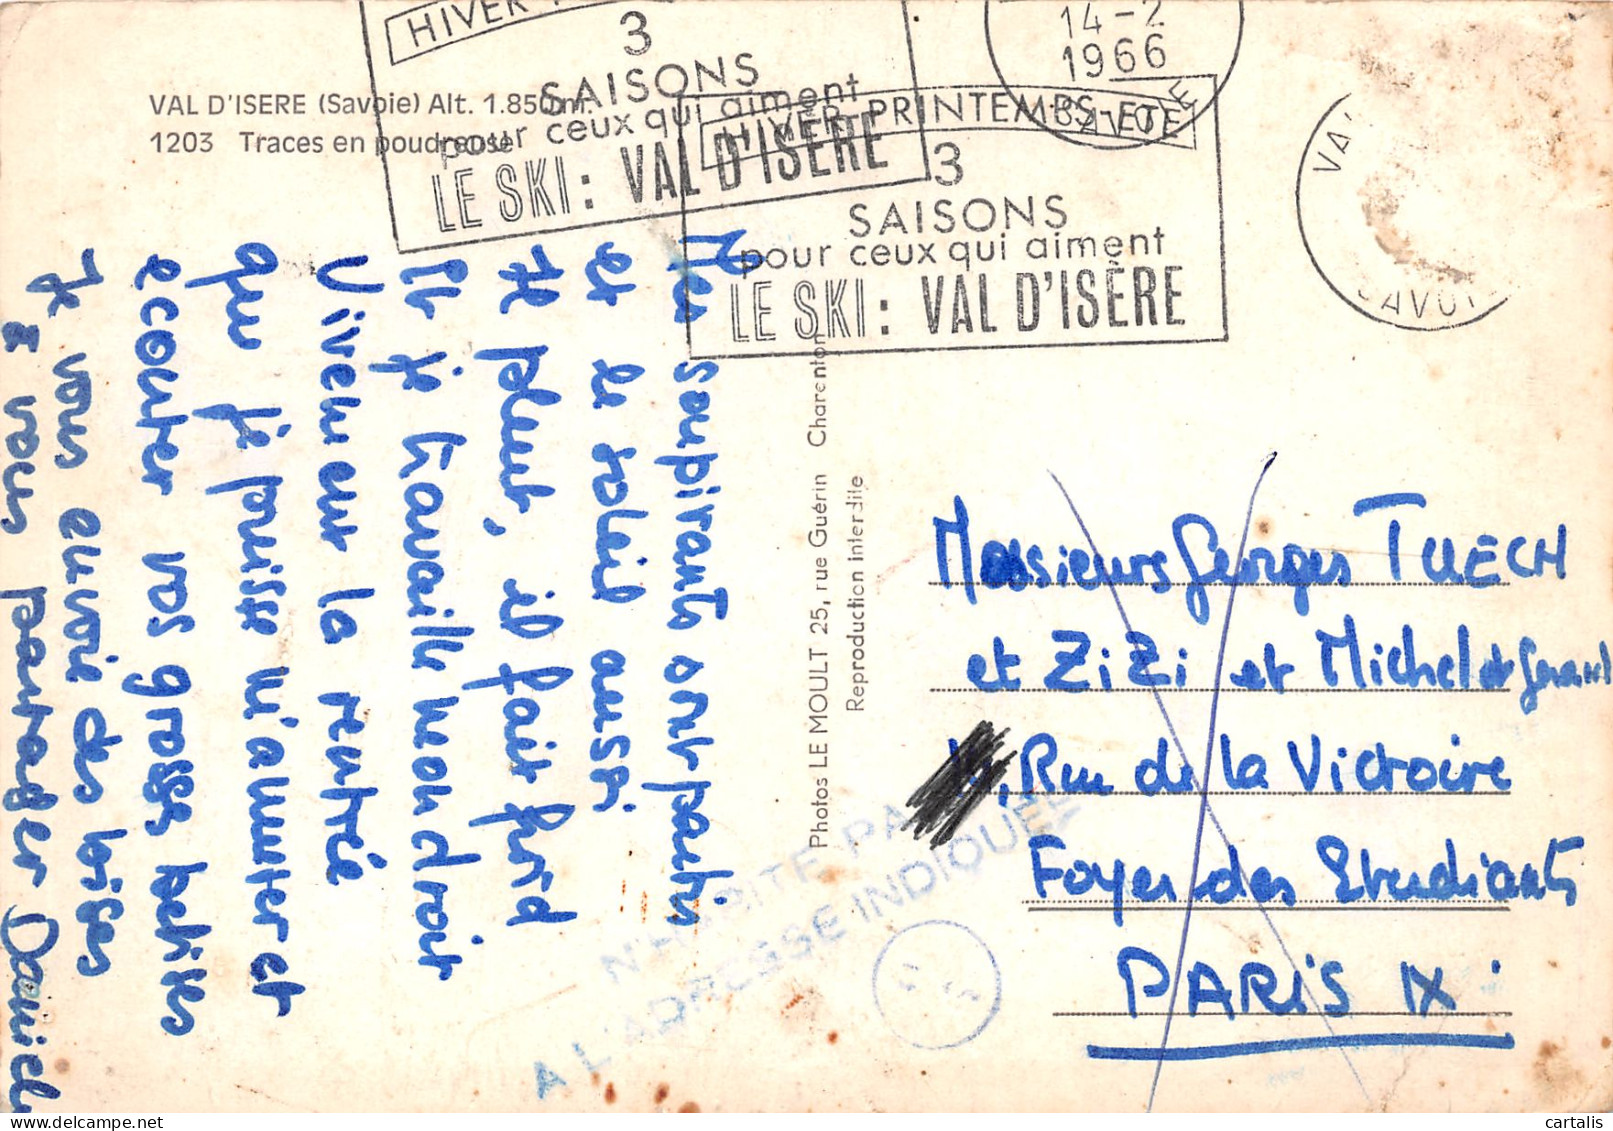 VAL D'ISERE (Savoie) Alt. 1.850 m.
1203 Traces en poudreuse
HIVER
3
SAISONS
pour ceux qui aiment
LE SKI : VAL D'ISÈRE
HIVER, PRINTEMPS ETÉ
3
SAISONS
pour ceux qui aiment
LE SKI : VAL D'ISÈRE
14-2
1966
SAVOIE
VAL
SAVOI
Mes soupirants ont partis
et le soleil aussi
Il pleut, il fait froid
Et je travaille mon droit
Vivement la rentrée
que je puisse m'ameter et
ecouter vos grosses betises
Je vous envoie des bises
à vous partager Daniel
Photos LE MOULT 25, rue Guérin Charenton
Reproduction interdite
Messieurs Georges TUECH
et ZiZi et Michel et Gerard
, Rue de la Victoire
Foyer des Etudiants
PARIS IX
N'HABITE PAS
A L'ADRESSE INDIQUÉE
cartalis